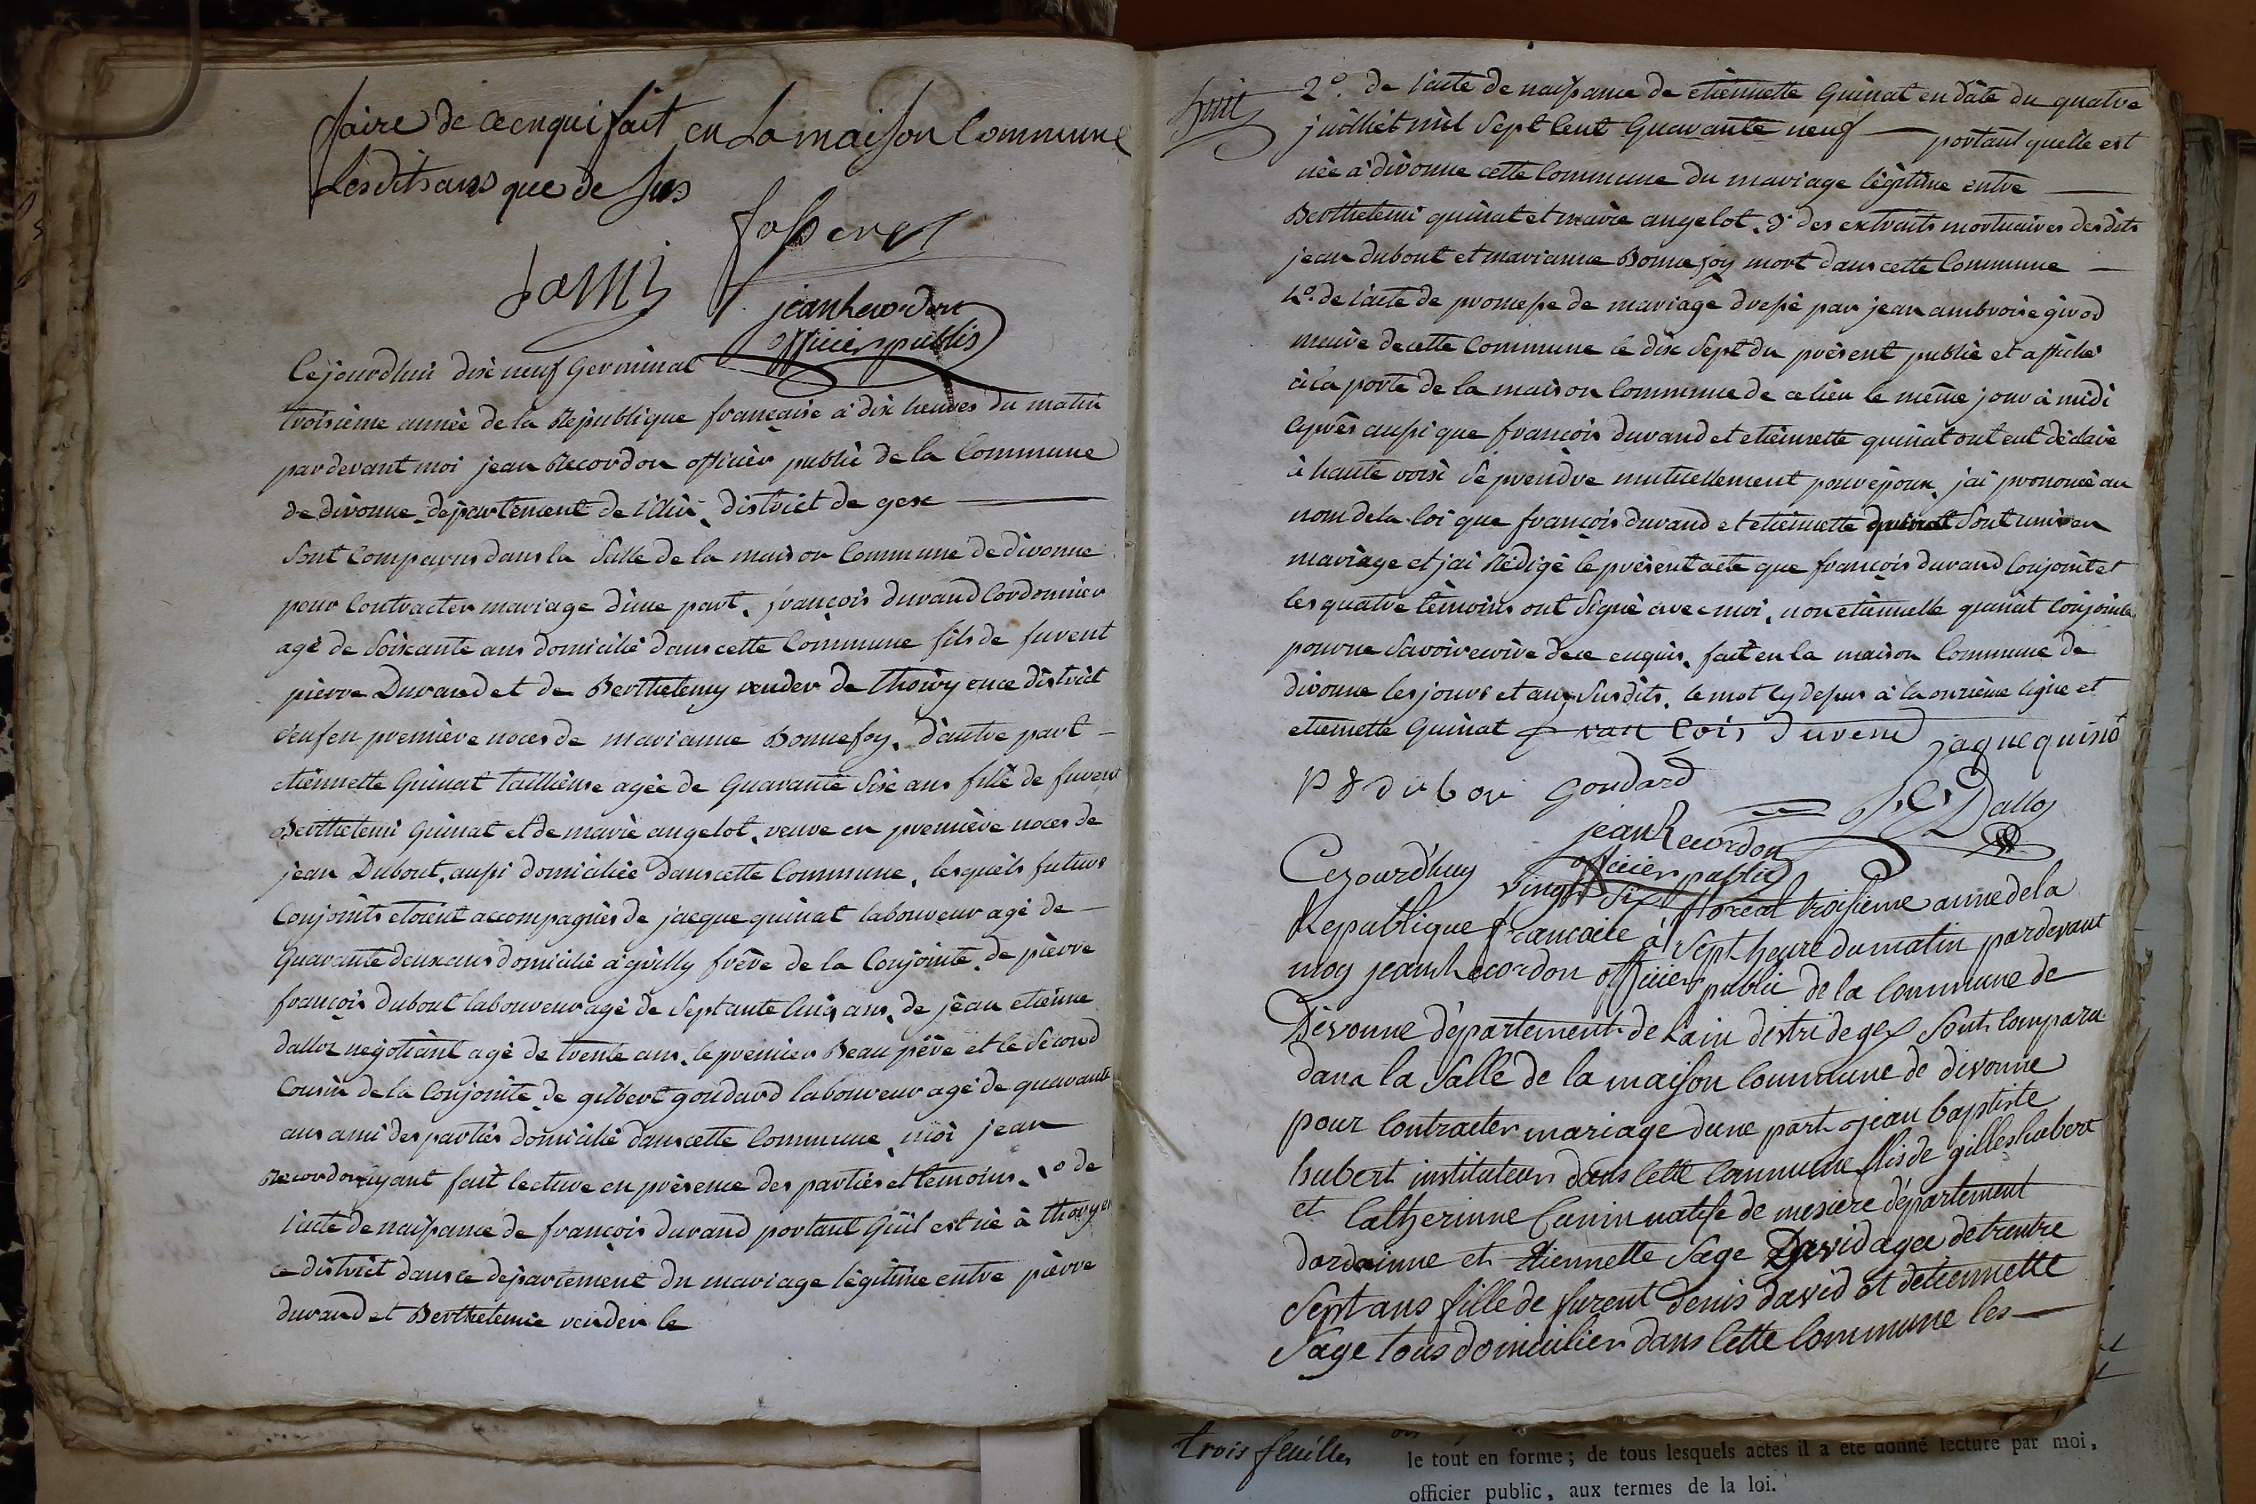 faire de ce enqui fait en La maison Commune
Lesdits ans que de Sus
jean Recordon
officier public
Cejourdhui dix neuf Germinal
troisième année de la Republique française à dix heures du matin
par devant moi jean Recordon officier public de la Commune
de divonne departement de l'Ain, district de gex
Sont Comparus dans la Salle de la maison Commune de divonne
pour Contracter mariage d'une part, françois durand Cordonnier
agé de Soixante ans domicilié dans cette Commune fils de furent
pierre Durand et de Berthelemy vender de thoiry ence district
veuf en première noces de marianne Bonnefoy, d'autre part
etiennette Guinat taillieuse agée de Quarante Six ans fille de furent
Berthelemi Guinat et de marie angelot, veuve en première noces de
jean Dubout, aussi domiciliée dans cette Commune, lesquels futurs
Conjoints etoient accompagnés de jacque quinat laboureur agé de
Quarante deux ans domicilié à grilly frère de la Conjointe, de pierre
françois dubout laboureur agé de Septante ans, de jean etienne
dalloz negotiant agé de trente ans, le premier Beau père et le Second
Cousin de la Conjointe de gilbert goudard laboureur agé de quarante
ans ami des parties domicilié dans cette Commune, moi jean
Recordon ayant fait lecture en présence des parties et temoins, 1º de
l'acte de naissance de françois durand portant Qu'il est né à thoiry en
ce district dans ce departement du mariage légitime entre pierre
durand et Berthelemie vender le
huit
2º. de l'acte de naissance de etiennette Guinat en date du quatre
juilliet mil Sept Cent Quarante neuf portant quelle est
née à divonne cette Commune du mariage légitime entre
Berthelemi quinat et marie angelot, 3º des extraits mortuaires desdits
jean dubout et marianne Bonnefoy mort dans cette Commune
4º. de l'acte de promesse de mariage dressé par jean ambroise girod
maire de cette Commune le dix Sept du présent publié et affiché
à la porte de la maison Commune de ce lieu le même jour à midi
Cyprès aussi que françois durand et etiennette quinat ont eut déclaré
à haute voix Se prendre mutuellement pour epoux, j'ai prononcé au
nom de la loi que françois durand et etiennette quinat Sont unis en
mariage et j'ai Rédigé le présent acte que françois durand Conjoint et
les quatre témoins ont Signé avec moi, non etiennette quinat Conjointe
pour ne Savoir ecrire de ce enquis, fait en la maison Commune de
divonne les jours et an Susdits, le mot Cydessus à la onzième ligne et
etiennette Guinat francois Durend jaque quinat
P f dubou Goudard
J. E. Dalloz
jean Recordon
officier public
Cejourd'huy vingt Six floréal troisieme anné de la
Republique francaise à Sept heure du matin pardevant
moy jean Recordon officier public de la Commune de
Divonne département de Lain distri de gex Sont Compara
dans la Salle de la maison Commune de divonne
pour Contracter mariage dune part jean baptiste
hubert instituteur dans Cette Commune fils de gilles hubert
et Catherinne Cunin natife de mesiere département
dardainne et Etiennette Sage David agée de trentre
Sept ans fille de furent Denis david et detiennette
Sage tous domicilier dans Cette Commune les
trois feuilles
le tout en forme; de tous lesquels actes il a été donné lecture par moi,
officier public, aux termes de la loi.